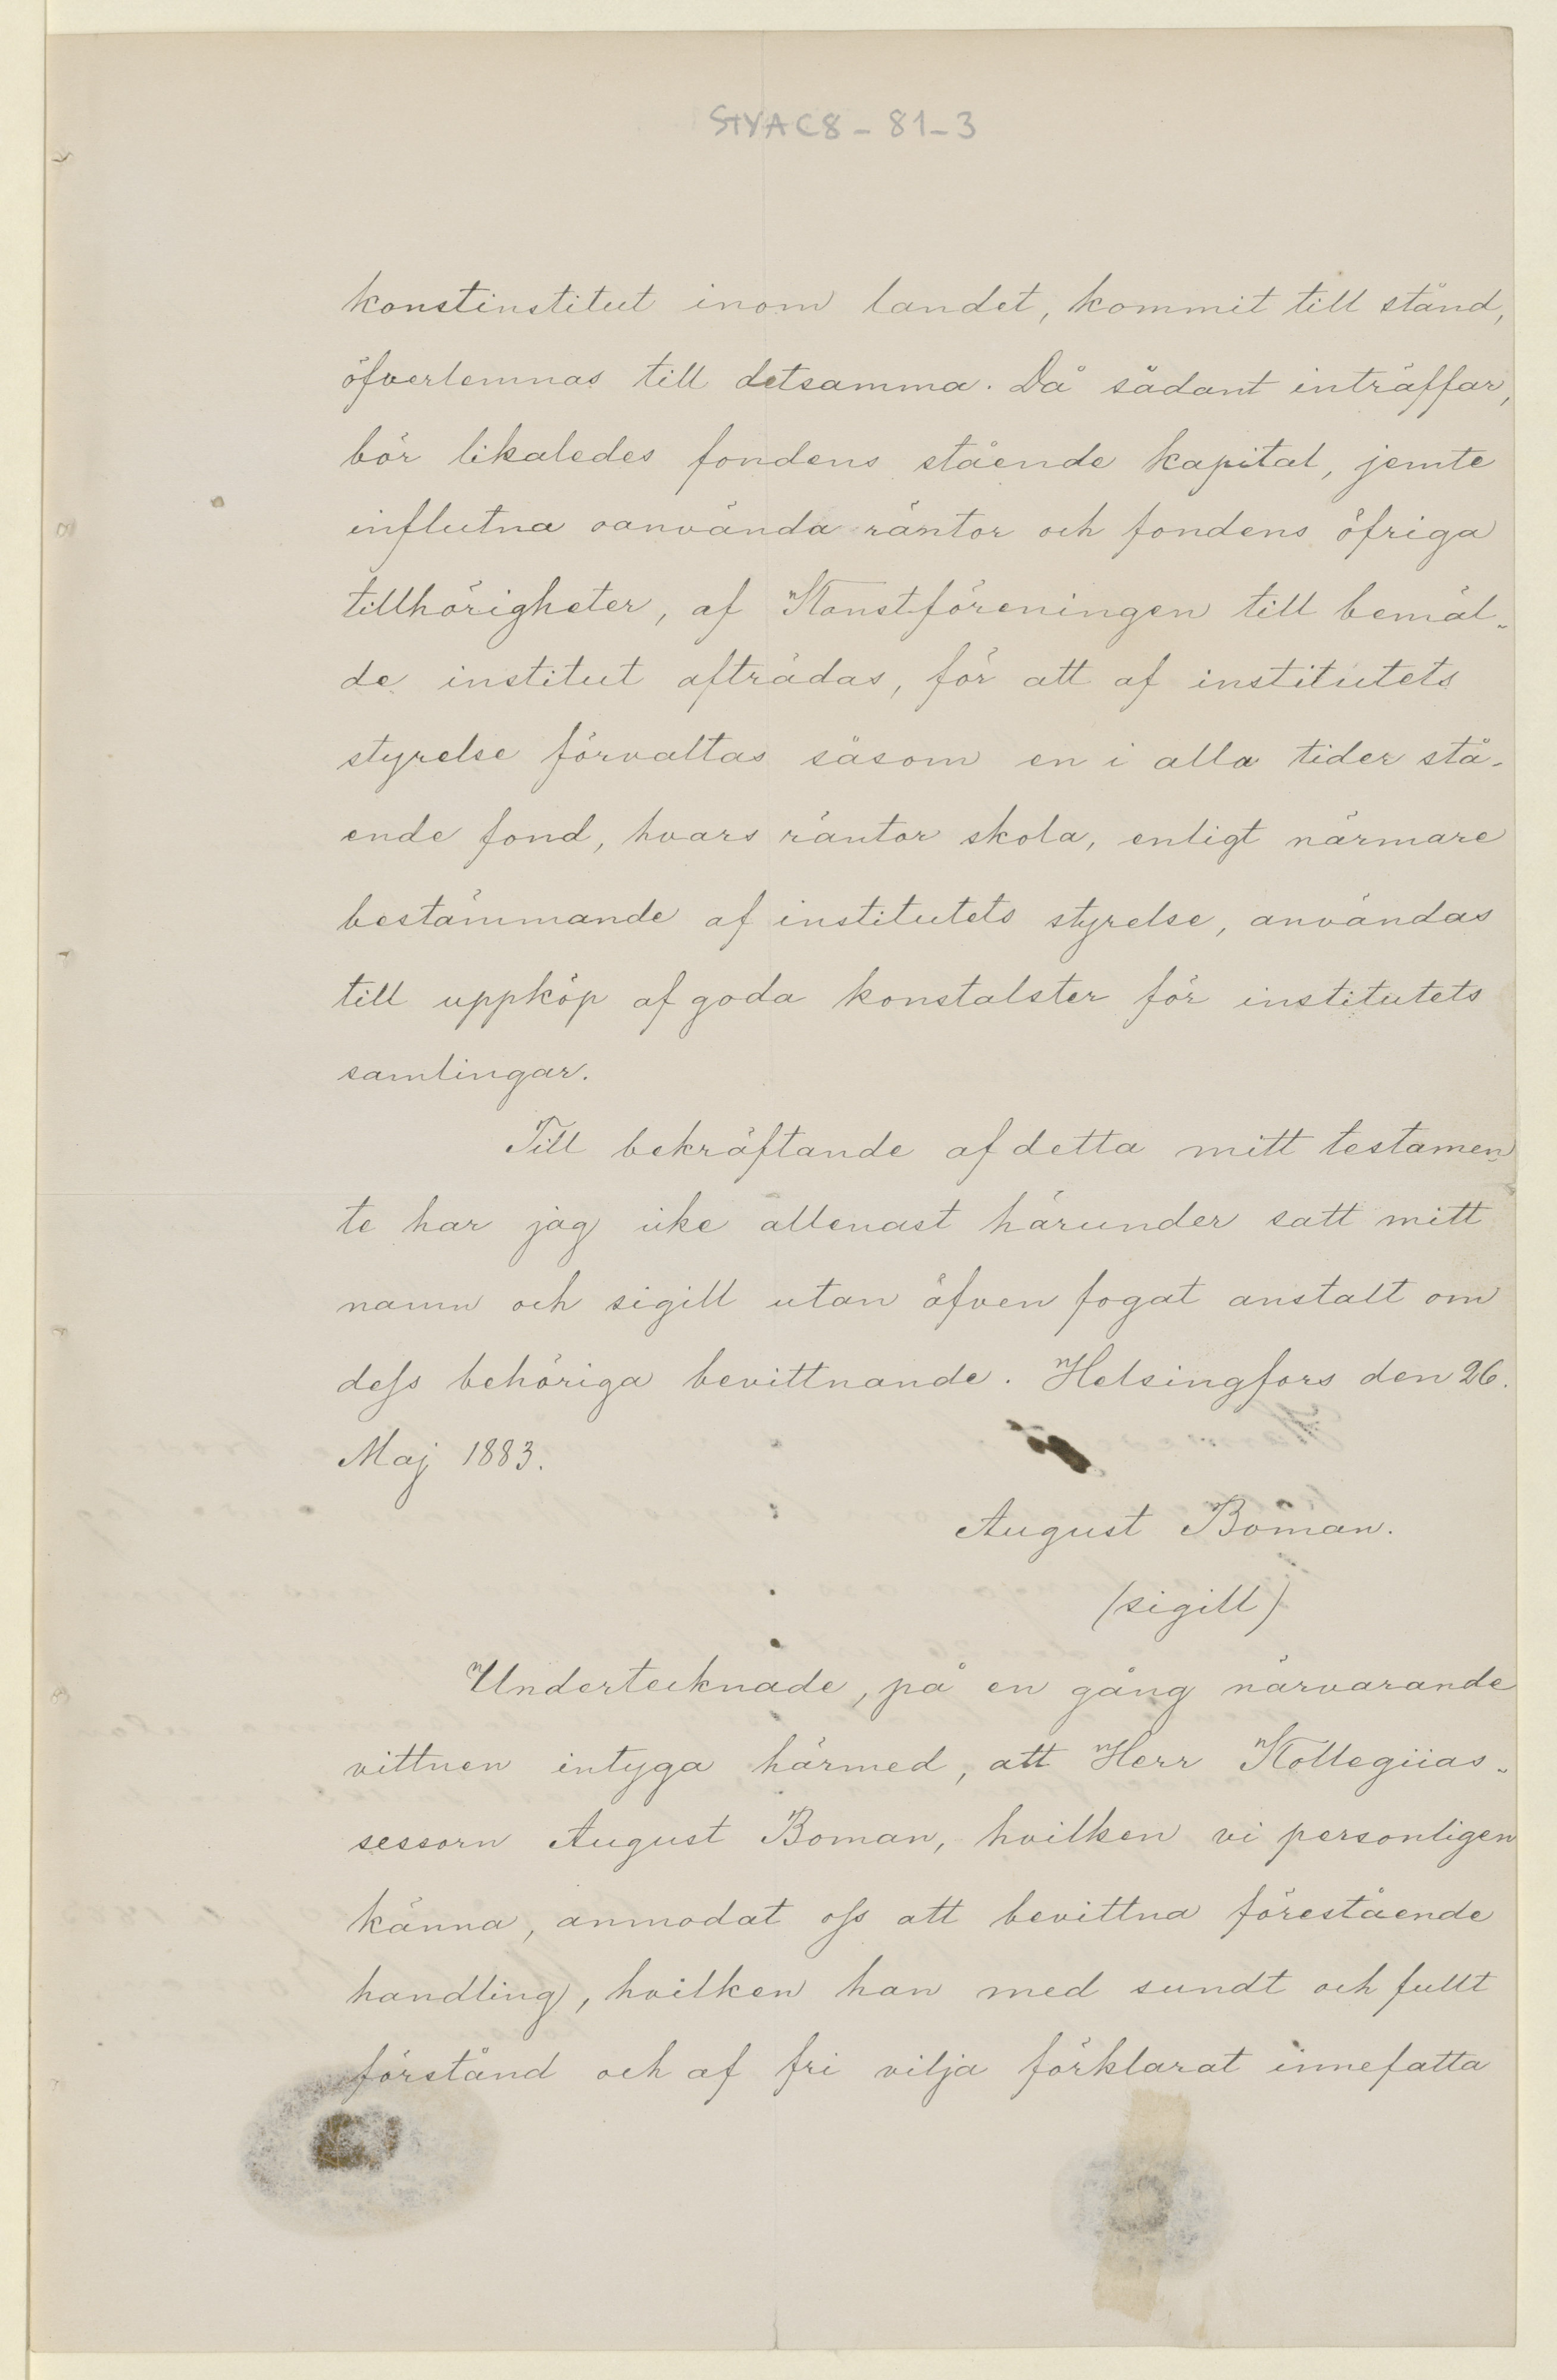 STYAC8-81-3
konstinstitut inom landet, kommit till stånd,
öfverlemnas till detsamma. Då sådant inträffar,
bör likaledes fondens stående kapital, jemte
influtna oanvända räntor och fondens öfriga
tillhörigheter, af Konstföreningen till bemäl-
de institut afträdas, för att af institutets
styrelse förvaltas såsom en i alla tider stå-
ende fond, hvars räntor skola, enligt närmare
bestämmande af institutets styrelse, användas
till uppköp af goda konstalster för institutets
samlingar.
Till bekräftande af detta mitt testamen
te har jag icke allenast härunder satt mitt
namn och sigill utan äfven fogat anstalt om
dess behöriga bevittnande. Helsingfors den 26.
Maj 1883.
August Boman.
(sigill)
Undertecknade, på en gång närvarande
vittnen intyga härmed, att Herr Kollegiias-
sessorn August Boman, hvilken vi personligen
känna, anmodat oss att bevittna förestående
handling, hvilken han med sundt och fullt
förstånd och af fri vilja förklarat innefatta